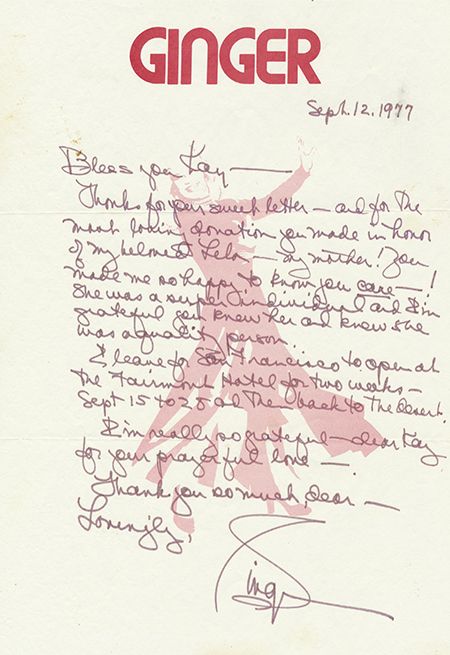 GINGER
Sept. 12, 1977
Bless you Kay —
Thanks for your sweet letter — and for the
most loving donation you made in honor
of my beloved Lela — my mother! You
made me so happy to know you care — !
She was a super individual and I'm
grateful you knew her and knew she
was a quality person.
I leave for San Francisco to open at
the Fairmont Hotel for two weeks —
Sept 15 to 28 and then back to the desert.
I'm really so grateful — dear Kay
for your prayerful love — .
Thank you so much, dear —
Lovingly,
Ginger